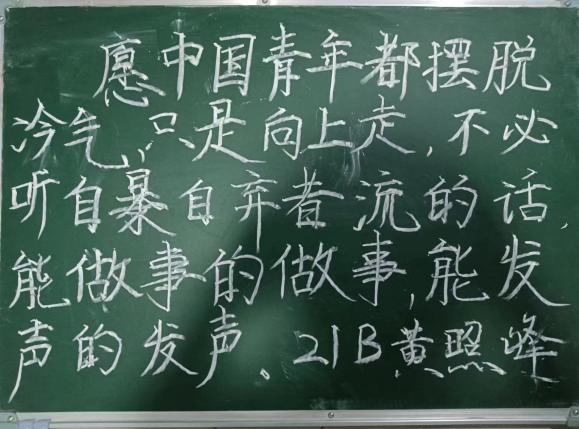 愿中国青年都摆脱
冷气,只是向上走,不必
听自暴自弃者流的话,
能做事的做事,能发
声的发声。21B黄照峰